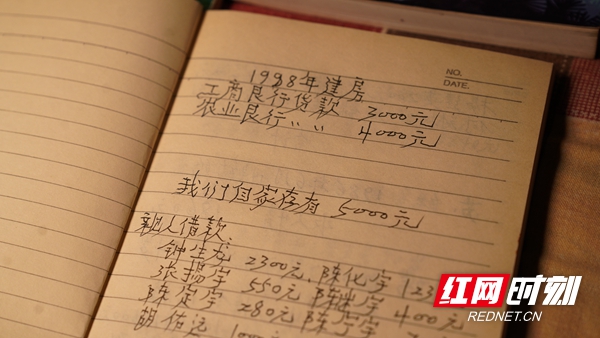 NO.
DATE.
1998年建房
工商良行货款 3000元
农业良行〃〃 4000元
我们自家存有 5000元
亲人借款
钟生龙 2300元 陈化字 123
张揚字 550元 陈 字 400元
陈定字 280元 陈 字
胡佑运 1000
红网时刻
REDNET.CN